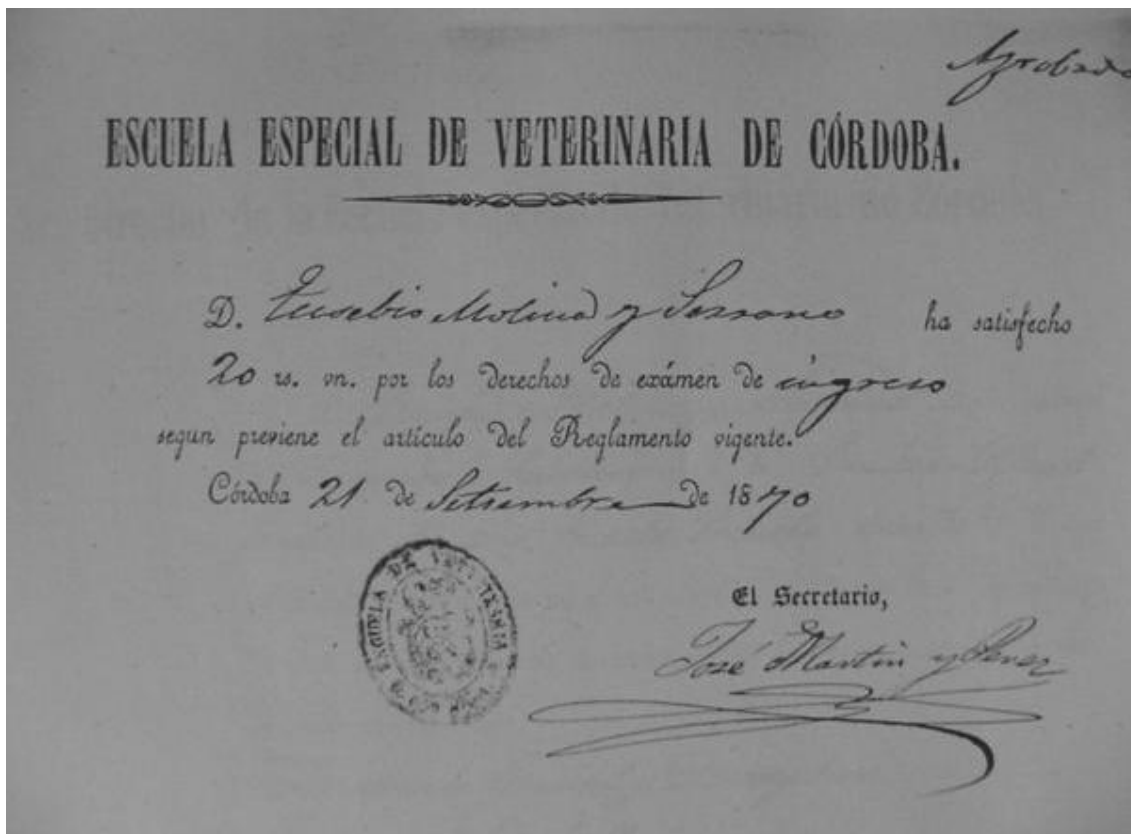 Aprobado
ESCUELA ESPECIAL DE VETERINARIA DE CÓRDOBA.
D. Eusebio Molina y Serrano ha satisfecho
20 rs. vn. por los derechos de exámen de ingreso
segun previene el artículo del Reglamento vigente.
Córdoba 21 de Setiembre de 1870
El Secretario,
José Martin y Perez
ESCUELA DE VETERINARIA